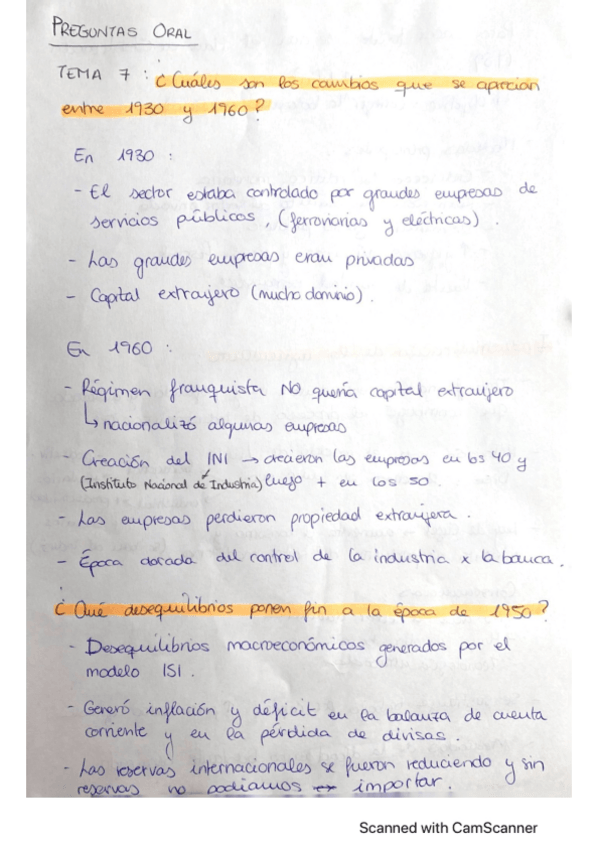 PREGUNTAS ORAL
TEMA 7 : ¿Cuáles son los cambios que se aprecian
entre 1930 y 1960?
En 1930 :
- El sector estaba controlado por grandes empresas de
servicios públicos, (ferroviarias y eléctricas).
- Las grandes empresas eran privadas
- Capital extranjero (mucho dominio).
En 1960 :
- Régimen franquista NO quería capital extranjero
↳ nacionalizó algunas empresas
- Creación del INI → crecieron las empresas en los 40 y
(Instituto Nacional de Industria) luego + en los 50
- Las empresas perdieron propiedad extranjera.
- Época dorada del control de la industria x la banca.
¿Qué desequilibrios ponen fin a la época de 1950?
- Desequilibrios macroeconómicos generados por el
modelo ISI.
- Generó inflación y déficit en la balanza de cuenta
corriente y en la pérdida de divisas.
- Las reservas internacionales se fueron reduciendo y sin
reservas no podíamos importar.
Scanned with CamScanner